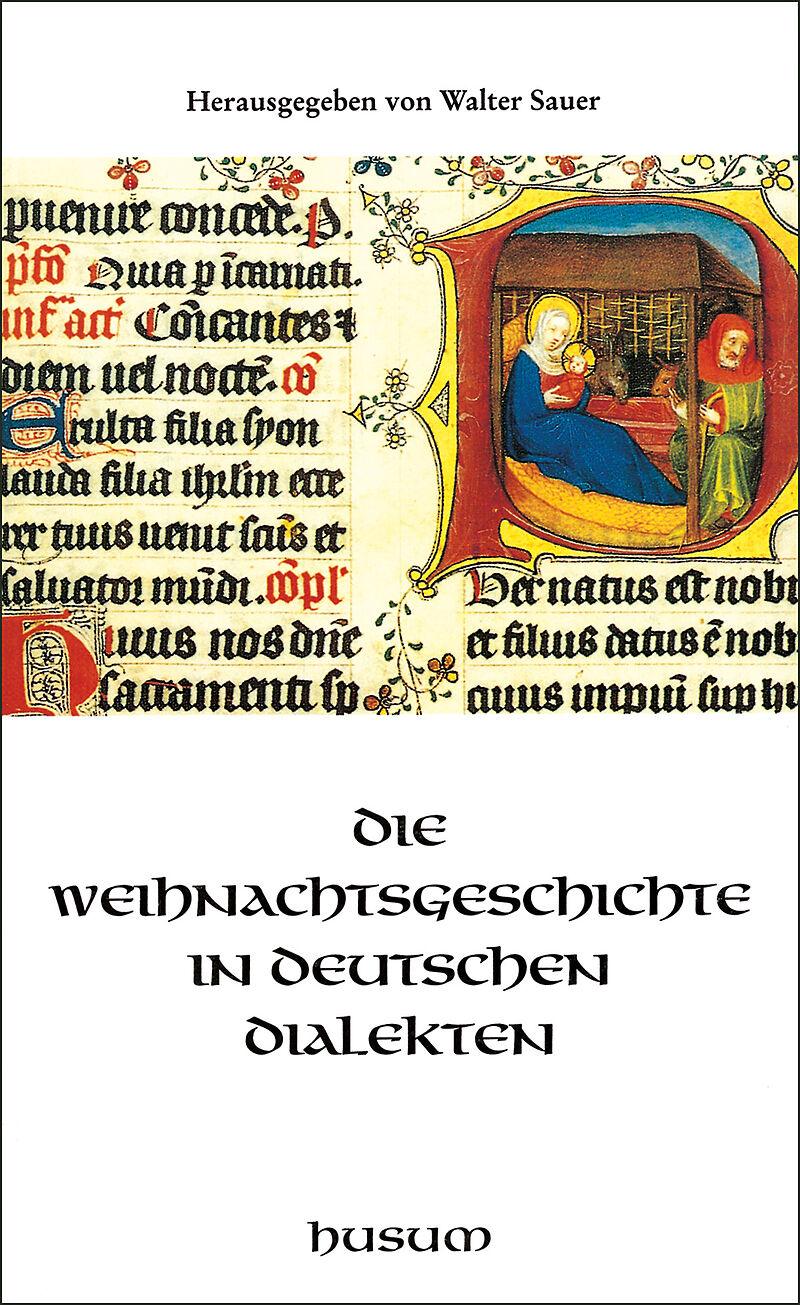 Herausgegeben von Walter Sauer
puenire concede. P.
p̄fō Quia p īcarnati.
inf̄ act̄ Cōīcantes ⁊
diem uel noctē. cō
Exulta filia syon
lauda filia ihrlm ecce
rex tuus uenit scūs et
saluator mūdi. cōpl
Huius nos dn̄e
sacramenti sp
Per natus est nobi
et filius datus ē nob
cuius impiū sup hu
DIE
WEIHNACHTSGESCHICHTE
IN DEUTSCHEN
DIALEKTEN
husum